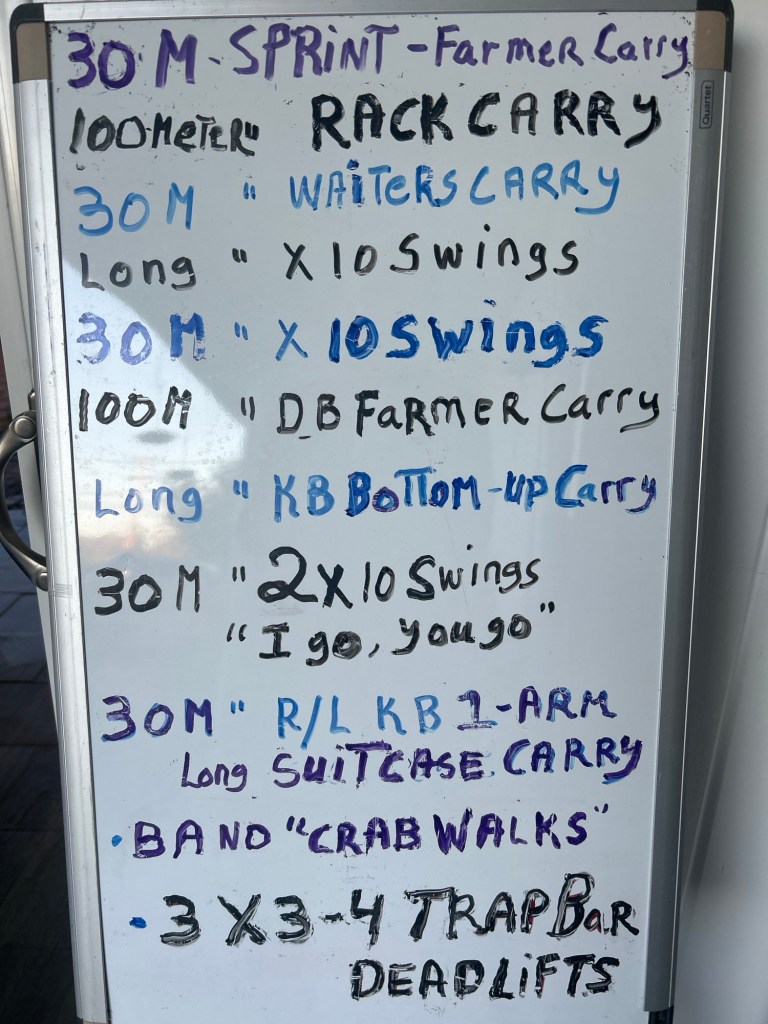 30 M - SPRINT - Farmer Carry
100 METER " RACK CARRY
30 M " WAITERS CARRY
Long " X 10 Swings
30 M " X 10 Swings
100 M " DB FARMER Carry
Long " KB BOTTOM-UP Carry
30 M " 2 X 10 Swings
"I go, you go"
30 M " R/L KB 1-ARM
Long SUITCASE CARRY
• BAND "CRAB WALKS"
• 3 X 3-4 TRAP BAR
DEADLIFTS
Quartet